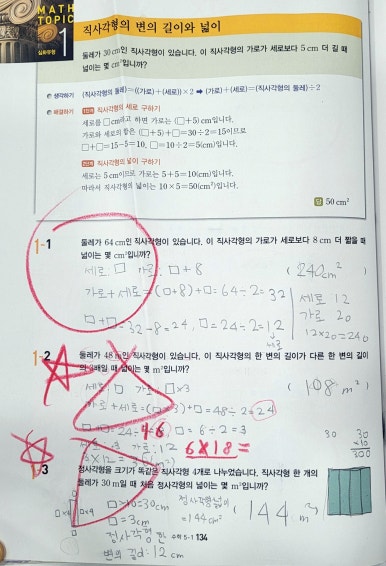 MATH
TOPIC
1
심화유형
직사각형의 변의 길이와 넓이
둘레가 30 cm인 직사각형이 있습니다. 이 직사각형의 가로가 세로보다 5 cm 더 길 때
넓이는 몇 cm²입니까?
생각하기 (직사각형의 둘레)=((가로)+(세로))×2 ➡ (가로)+(세로)=(직사각형의 둘레)÷2
해결하기 1단계 직사각형의 세로 구하기
세로를 □ cm라고 하면 가로는 (□+5) cm입니다.
가로와 세로의 합은 (□+5)+□=30÷2=15이므로
□+□=15-5=10, □=10÷2=5(cm)입니다.
2단계 직사각형의 넓이 구하기
세로는 5 cm이므로 가로는 5+5=10(cm)입니다.
따라서 직사각형의 넓이는 10×5=50(cm²)입니다.
답 50 cm²
1-1 둘레가 64 cm인 직사각형이 있습니다. 이 직사각형의 가로가 세로보다 8 cm 더
넓이는 몇 cm²입니까?
세로: □ 가로: □+8 ( 240cm² )
가로+세로=(□+8)+□=64÷2=32
세로 12
가로 20
12×20=240
□+□=32-8=24, □=24÷2=12
1-2 둘레가 48 m인 직사각형이 있습니다. 이 직사각형의 한 변의 길이가 다른 한 변의 길이
의 배일 때 넓이는 몇 m²입니까?
세로 □ 가로 □×3 ( 108 m² )
가로+세로=(□×3)+□=48÷2=24
□=6÷2=3
가로: 12 6×18=
30 30
×10
300
1-3 정사각형을 크기가 똑같은 직사각형 4개로 나누었습니다. 직사각형 한 개의
둘레가 30 m일 때 처음 정사각형의 넓이는 몇 m²입니까?
□×4 □×10=30cm 정사각형넓이
□=3cm =144cm² ( 144 m² )
정사각형 한
변의 길이: 12cm
수학 5-1 134